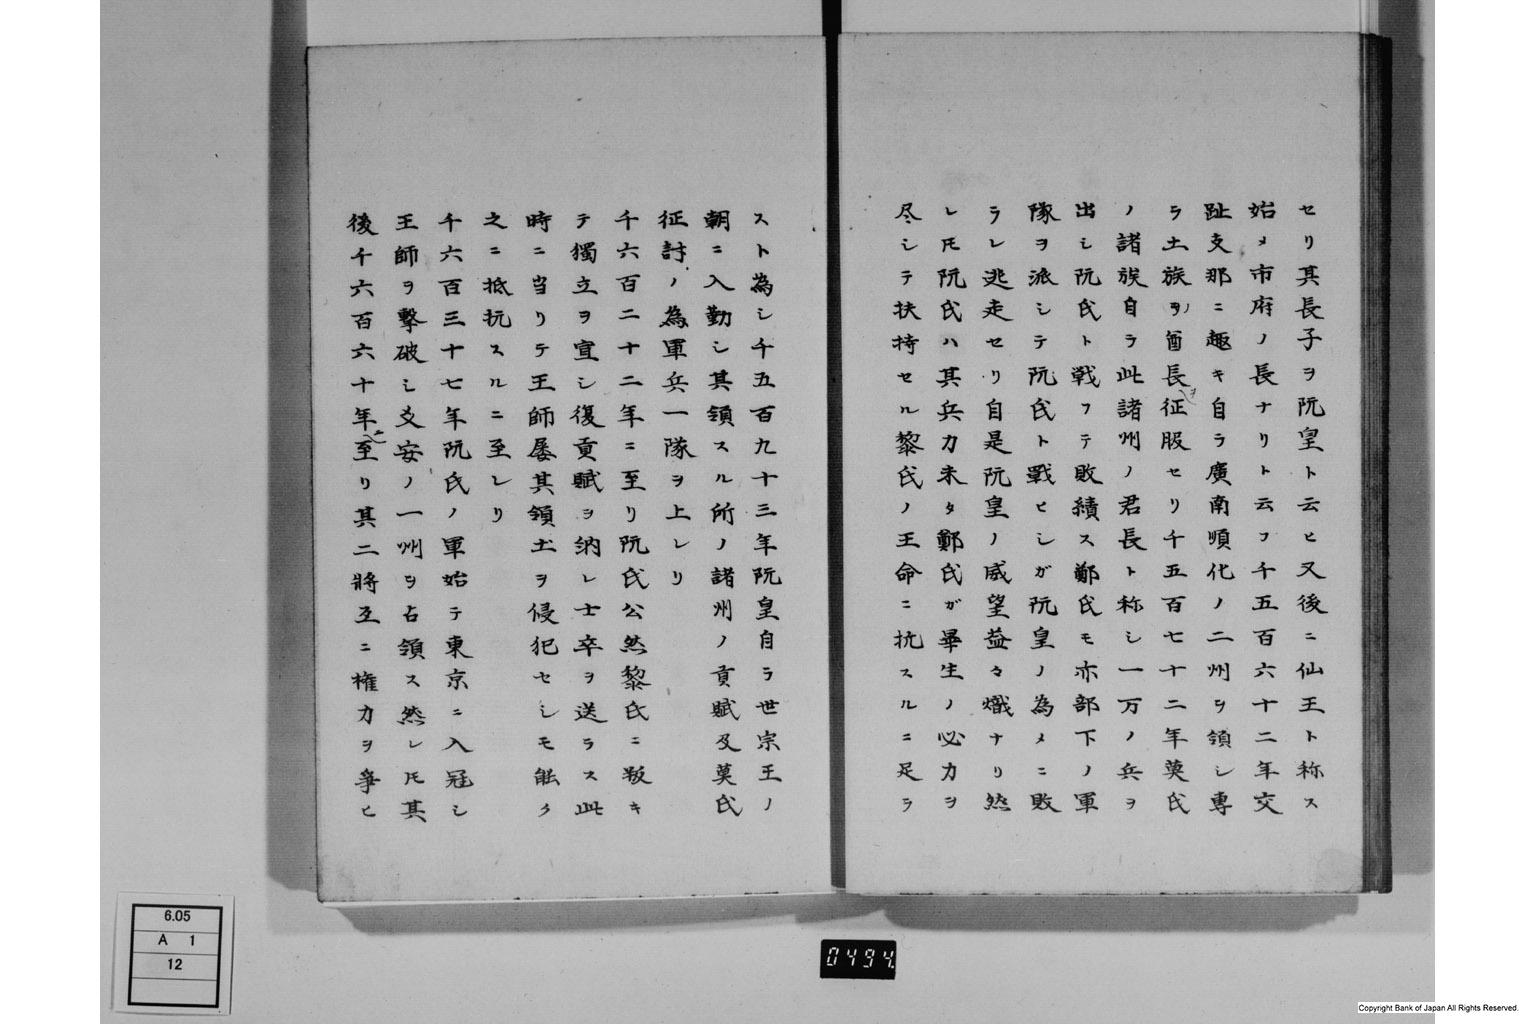 セリ其長子ヲ阮皇ト云ヒ又後ニ仙王ト称ス
始メ市府ノ長ナリト云フ千五百六十二年交
趾支那ニ趣キ自ラ廣南順化ノ二州ヲ領シ専
ラ土族ヲ酋長ヲ征服セリ千五百七十二年莫氏
ノ諸族自ラ此諸州ノ君長ト称シ一万ノ兵ヲ
出シ阮氏ト戦フテ敗績ス鄭氏モ亦部下ノ軍
隊ヲ派シテ阮氏ト戰ヒシガ阮皇ノ為メニ敗
ラレ逃走セリ自是阮皇ノ威望益々熾ナリ然
レ𪜈阮氏ハ其兵力未タ鄭氏ガ畢生ノ必力ヲ
尽シテ扶持セル黎氏ノ王命ニ抗スルニ足ラ
スト為シ千五百九十三年阮皇自ラ世宗王ノ
朝ニ入勤シ其領スル所ノ諸州ノ貢賦及莫氏
征討ノ為軍兵一隊ヲ上レリ
千六百二十二年ニ至リ阮氏公然黎氏ニ叛キ
テ獨立ヲ宣シ復貢賦ヲ納レ士卒ヲ送ラス此
時ニ当リテ王師屡其領土ヲ侵犯セシモ能ク
之ニ抵抗スルニ至レリ
千六百三十七年阮氏ノ軍始テ東京ニ入冦シ
王師ヲ撃破シ爻安ノ一州ヲ占領ス然レ𪜈其
後千六百六十年ニ至リ其二將互ニ権力ヲ爭ヒ
6.05
A 1
12
0494
Copyright Bank of Japan All Rights Reserved.